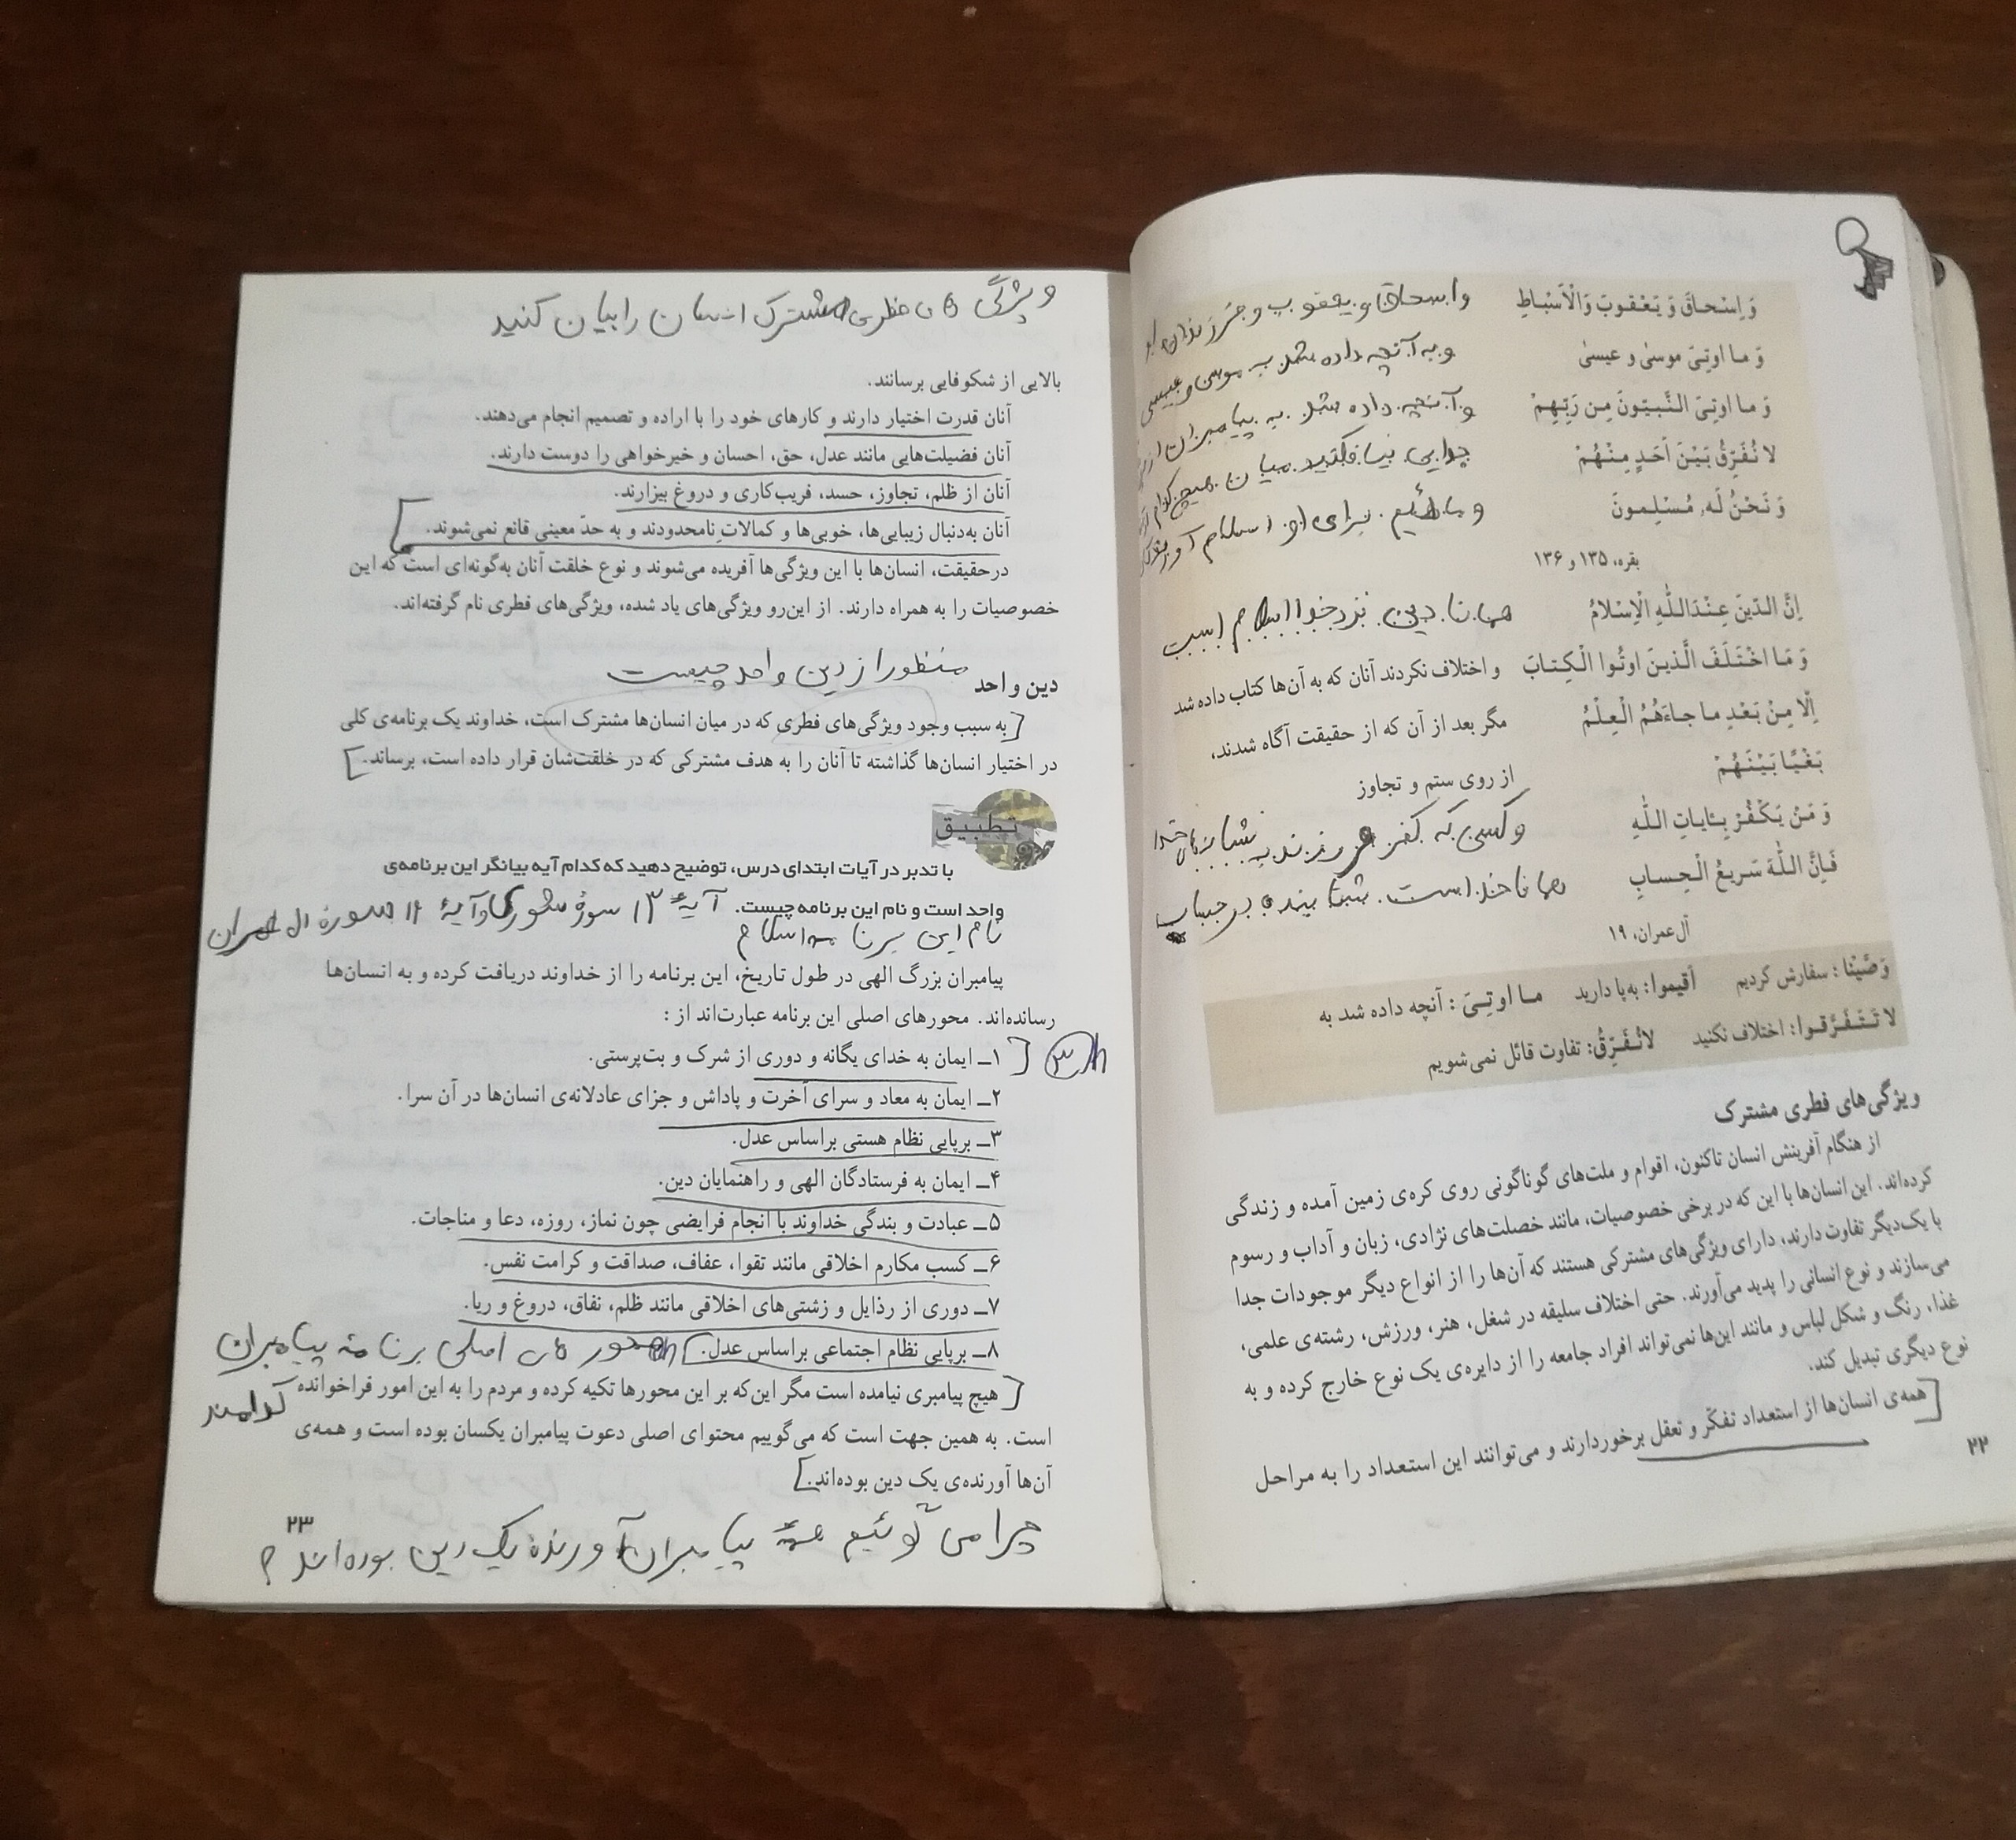 وَ اِسْحاقَ وَ يَعْقوبَ وَالْاَسْباطِ
واسحاق و یعقوب و فرزندان او
وَ ما اوتِیَ موسیٰ و عیسیٰ
و به آنچه داده شد به موسی و عیسی
وَ ما اوتِیَ النَّبیّونَ مِن رَبِّهِمْ
و آنچه داده شد به پیامبران از
لا نُفَرِّقُ بَیْنَ اَحَدٍ مِنْهُمْ
جدایی نیافکنید میان هیچ کدام از
وَ نَحْنُ لَه، مُسْلِمونَ
و ما برای او اسلام
بقره، ۱۳۵ و ۱۳۶
اِنَّ الدّینَ عِنْدَاللّٰهِ الْاِسْلامُ
همانا دین نزد خدا اسلام است
وَ مَا اخْتَلَفَ الَّذینَ اوتُوا الْکِتابَ
و اختلاف نکردند آنان که به آن‌ها کتاب داده شد
اِلّا مِنْ بَعْدِ ما جاءَهُمُ الْعِلْمُ
مگر بعد از آن که از حقیقت آگاه شدند،
بَغْیًا بَیْنَهُمْ
از روی ستم و تجاوز
وَ مَنْ یَکْفُرْ بِئایاتِ اللّٰهِ
و کسی که کفر ورزند به نشانه های خدا
فَاِنَّ اللّٰهَ سَریعُ الْحِسابِ
همانا خداست شتابنده بر حساب
آل‌عمران، ۱۹
وَصَّیْنا : سفارش کردیم اَقیموا: به‌پا دارید ما اوتِیَ : آنچه داده شد به
لا تَتَفَرَّقوا: اختلاف نکنید لانُفَرِّقُ: تفاوت قائل نمی‌شویم
ویژگی‌های فطری مشترک
از هنگام آفرینش انسان تاکنون، اقوام و ملت‌های گوناگونی روی کره‌ی زمین آمده و زندگی
کرده‌اند. این انسان‌ها با این که در برخی خصوصیات، مانند خصلت‌های نژادی، زبان و آداب و رسوم
با یک‌دیگر تفاوت دارند، دارای ویژگی‌های مشترکی هستند که آن‌ها را از انواع دیگر موجودات جدا
می‌سازند و نوع انسانی را پدید می‌آورند. حتی اختلاف سلیقه در شغل، هنر، ورزش، رشته‌ی علمی،
غذا، رنگ و شکل لباس و مانند این‌ها نمی‌تواند افراد جامعه را از دایره‌ی یک نوع خارج کرده و به
نوع دیگری تبدیل کند.
همه‌ی انسان‌ها از استعداد تفکّر و تعقل برخوردارند و می‌توانند این استعداد را به مراحل
۲۲
ویژگی های فطری مشترک انسان را بیان کنید
بالایی از شکوفایی برسانند.
آنان قدرت اختیار دارند و کارهای خود را با اراده و تصمیم انجام می‌دهند.
آنان فضیلت‌هایی مانند عدل، حق، احسان و خیرخواهی را دوست دارند.
آنان از ظلم، تجاوز، حسد، فریب‌کاری و دروغ بیزارند.
آنان به‌دنبال زیبایی‌ها، خوبی‌ها و کمالاتِ نامحدودند و به حدّ معینی قانع نمی‌شوند.
درحقیقت، انسان‌ها با این ویژگی‌ها آفریده می‌شوند و نوع خلقت آنان به‌گونه‌ای است که این
خصوصیات را به همراه دارند. از این‌رو ویژگی‌های یاد شده، ویژگی‌های فطری نام گرفته‌اند.
دین واحد منظور از دین واحد چیست
به سبب وجود ویژگی‌های فطری که در میان انسان‌ها مشترک است، خداوند یک برنامه‌ی کلی
در اختیار انسان‌ها گذاشته تا آنان را به هدف مشترکی که در خلقت‌شان قرار داده است، برساند.
تطبیق
با تدبر در آیات ابتدای درس، توضیح دهید که کدام آیه بیانگر این برنامه‌ی
واحد است و نام این برنامه چیست. آیهٔ ۱۳ سورهٔ شوری و آیهٔ ۱۹ سورهٔ ال عمران
نام این برنامه اسلام
پیامبران بزرگ الهی در طول تاریخ، این برنامه را از خداوند دریافت کرده و به انسان‌ها
رسانده‌اند. محورهای اصلی این برنامه عبارت‌اند از :
۱ــ ایمان به خدای یگانه و دوری از شرک و بت‌پرستی.
۲ــ ایمان به معاد و سرای آخرت و پاداش و جزای عادلانه‌ی انسان‌ها در آن سرا.
۳ــ برپایی نظام هستی براساس عدل.
۴ــ ایمان به فرستادگان الهی و راهنمایان دین.
۵ــ عبادت و بندگی خداوند با انجام فرایضی چون نماز، روزه، دعا و مناجات.
۶ــ کسب مکارم اخلاقی مانند تقوا، عفاف، صداقت و کرامت نفس.
۷ــ دوری از رذایل و زشتی‌های اخلاقی مانند ظلم، نفاق، دروغ و ریا.
۸ــ برپایی نظام اجتماعی براساس عدل. محور های اصلی برنامهٔ پیامبران
کدامند
هیچ پیامبری نیامده است مگر این‌که بر این محورها تکیه کرده و مردم را به این امور فراخوانده
است. به همین جهت است که می‌گوییم محتوای اصلی دعوت پیامبران یکسان بوده است و همه‌ی
آن‌ها آورنده‌ی یک دین بوده‌اند.
۲۳
چرا می گوئیم همهٔ پیامبران آورندهٔ یک دین بوده اند؟